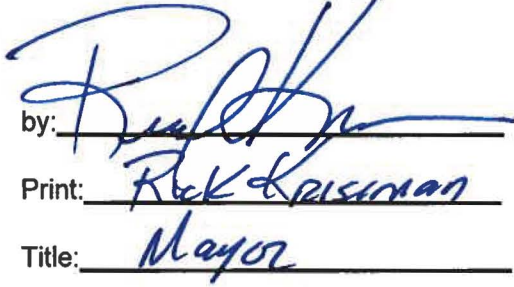 by:
Print: Rick Kriseman
Title: Mayor